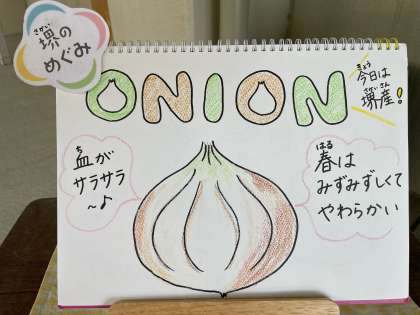 堺のめぐみ
さかい
ONION
きょう
今日は
さかいさん
堺産!
ち
血が
サラサラ
～♪
はる
春は
みずみずしくて
やわらかい